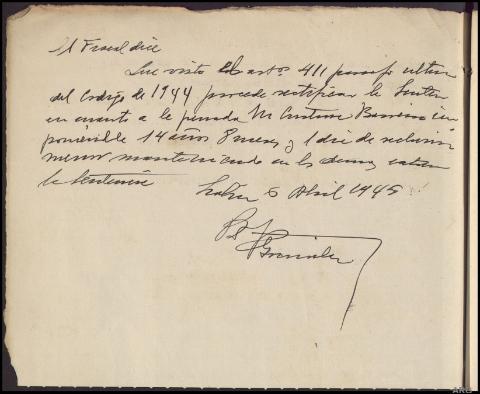 El Fiscal dice
Que visto el arto 411 parrafo ultimo
del Codigo de 1944 procede rectificar la Senten
en cuanto a la penada Mª Cristina
poniendole 14 años 8 meses y 1 dia de reclusion
menor manteniendo en lo demas
la Sentencia
5 Abril 1945